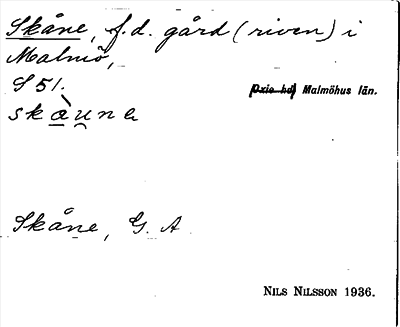 Skåne, f. d. gård (riven) i
Malmö,
S 51.
Oxie hd Malmöhus län.
skæ̀u̯na
Skåne, G. A
NILS NILSSON 1936.